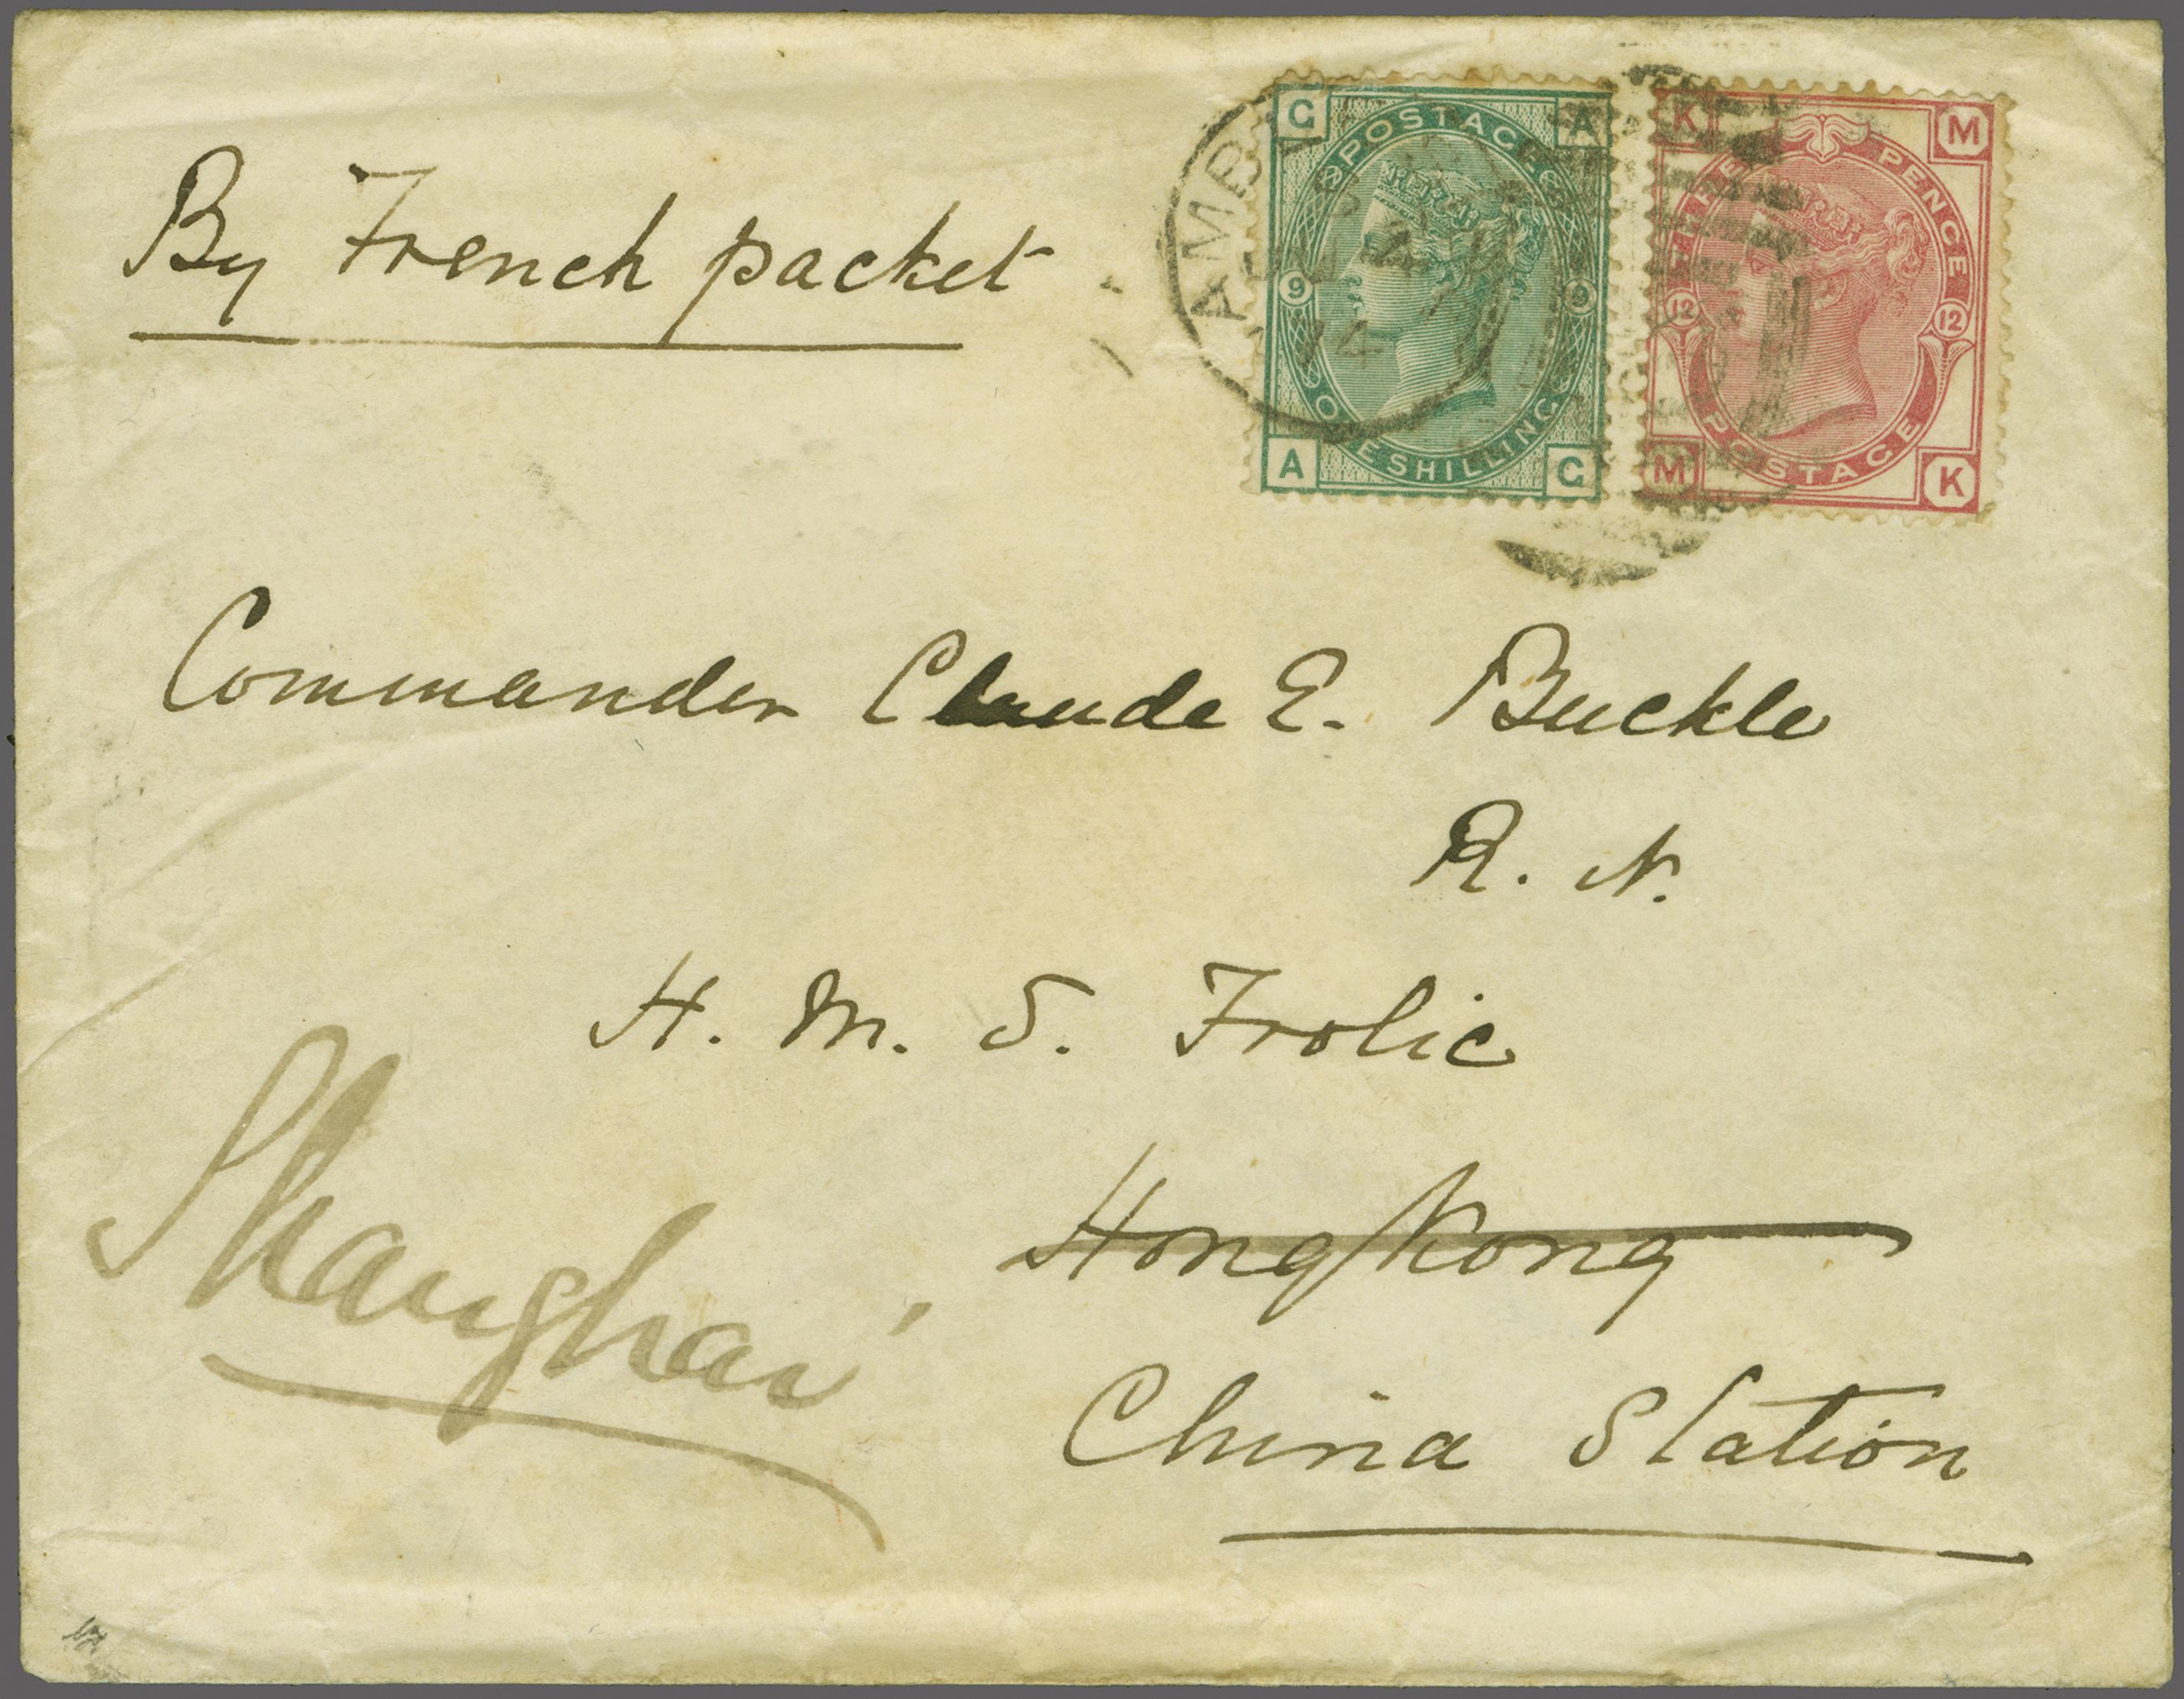 By French packet
AMB
JY 4
74
G A
POSTAGE
9 9
ONE SHILLING
A G
K M
THREE PENCE
12 12
POSTAGE
M K
Commander Claude E. Buckle
R. N.
H. M. S. Frolic
Hong Kong
Shanghai
China Station